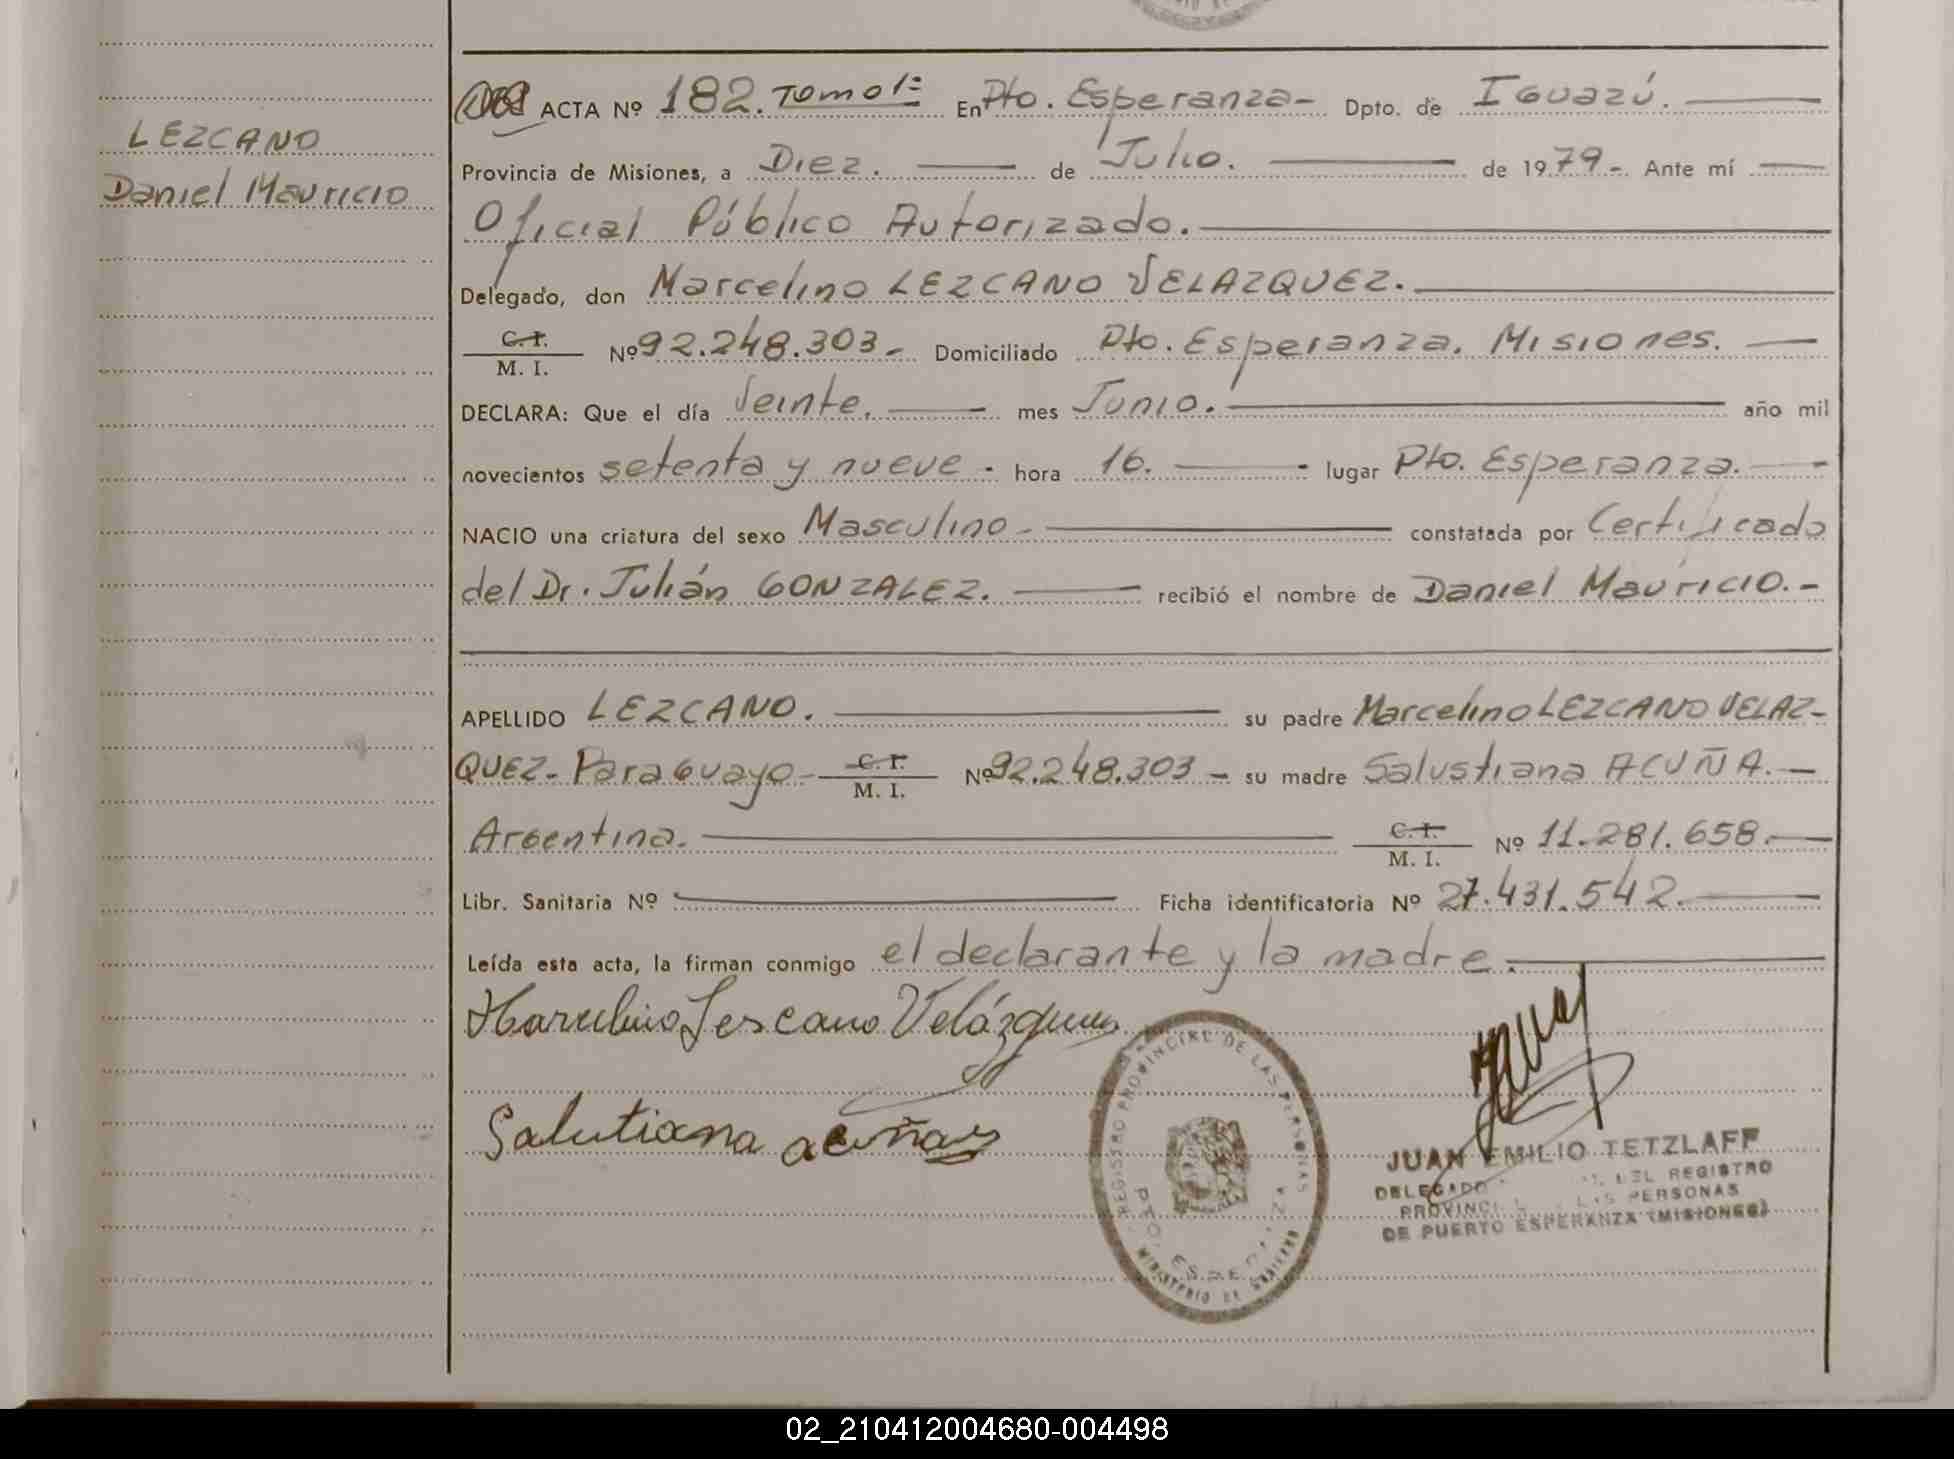 LEZCANO
Daniel Mauricio
ACTA Nº 182. Tomo 1º En Pto. Esperanza- Dpto. de Iguazú.
Provincia de Misiones, a Diez. de Julio. de 1979-. Ante mí
Oficial Público Autorizado.
Delegado, don Marcelino LEZCANO VELAZQUEZ.
C. I.
M. I. Nº 92.248.303- Domiciliado Pto. Esperanza. Misiones.
DECLARA: Que el día Veinte. mes Junio. año mil
novecientos setenta y nueve - hora 16. - lugar Pto. Esperanza.
NACIO una criatura del sexo Masculino- constatada por Certificado
del Dr. Julián GONZALEZ. recibió el nombre de Daniel Mauricio.-
APELLIDO LEZCANO. su padre Marcelino LEZCANO VELAZ-
QUEZ- Paraguayo- C. I. M. I. Nº 92.248.303- su madre Salustiana ACUÑA.-
Argentina. C. I. M. I. Nº 11.281.658.
Libr. Sanitaria Nº Ficha identificatoria Nº 27.431.542.
Leída esta acta, la firman conmigo el declarante y la madre.
Marcelino Lescano Velázquez
Salutiana acuña
REGISTRO PROVINCIAL DE LAS PERSONAS
MINISTERIO DE GOBIERNO
JUAN EMILIO TETZLAFF
DELEGADO DEL REGISTRO
PROVINCIAL LAS PERSONAS
DE PUERTO ESPERANZA (MISIONES)
02_210412004680-004498